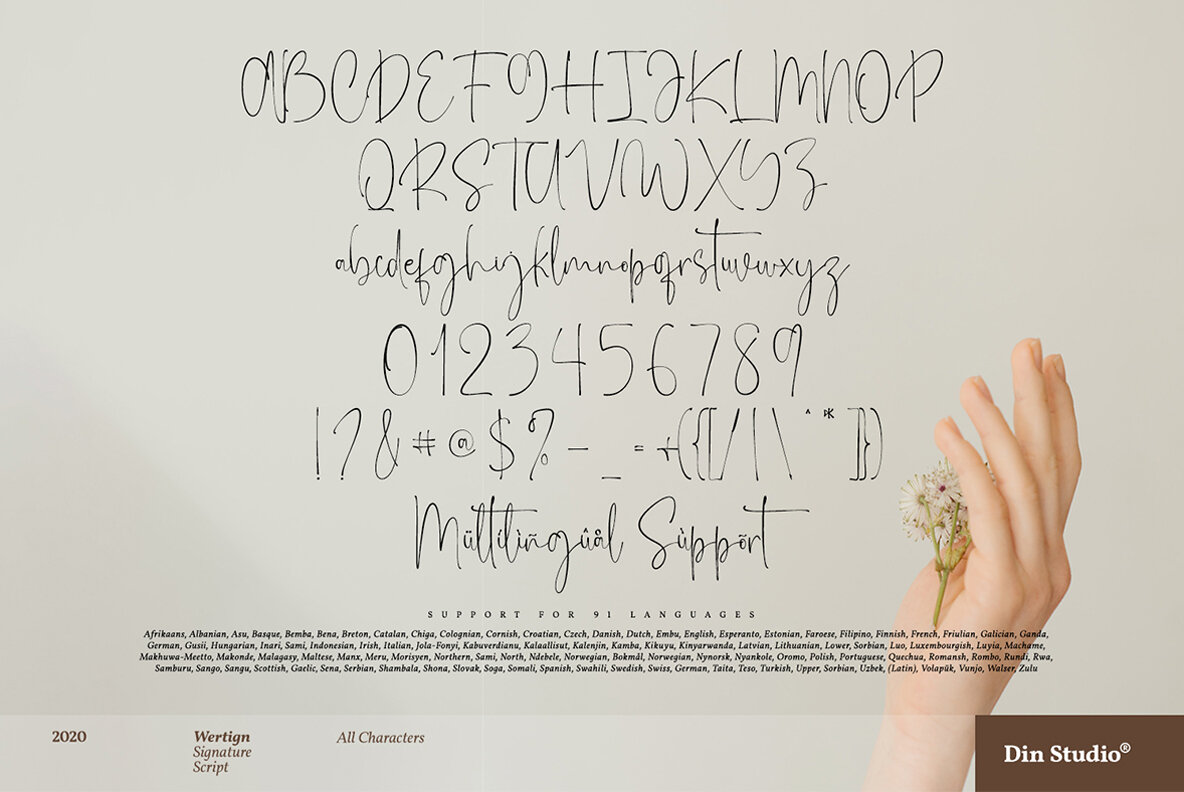 ABCDEFGHIJKLMNOP
QRSTUVWXYZ
abcdefghijklmnopqrstuvwxyz
0123456789
!?&#@$%-_=+({[/|\^*]})
Mültilìñgûål Sùppõrt
SUPPORT FOR 91 LANGUAGES
Afrikaans, Albanian, Asu, Basque, Bemba, Bena, Breton, Catalan, Chiga, Colognian, Cornish, Croatian, Czech, Danish, Dutch, Embu, English, Esperanto, Estonian, Faroese, Filipino, Finnish, French, Friulian, Galician, Ganda,
German, Gusii, Hungarian, Inari, Sami, Indonesian, Irish, Italian, Jola-Fonyi, Kabuverdianu, Kalaallisut, Kalenjin, Kamba, Kikuyu, Kinyarwanda, Latvian, Lithuanian, Lower, Sorbian, Luo, Luxembourgish, Luyia, Machame,
Makhuwa-Meetto, Makonde, Malagasy, Maltese, Manx, Meru, Morisyen, Northern, Sami, North, Ndebele, Norwegian, Bokmål, Norwegian, Nynorsk, Nyankole, Oromo, Polish, Portuguese, Quechua, Romansh, Rombo, Rundi, Rwa,
Samburu, Sango, Sangu, Scottish, Gaelic, Sena, Serbian, Shambala, Shona, Slovak, Soga, Somali, Spanish, Swahili, Swedish, Swiss, German, Taita, Teso, Turkish, Upper, Sorbian, Uzbek, (Latin), Volapük, Vunjo, Walser, Zulu
2020
Wertign
Signature
Script
All Characters
Din Studio®